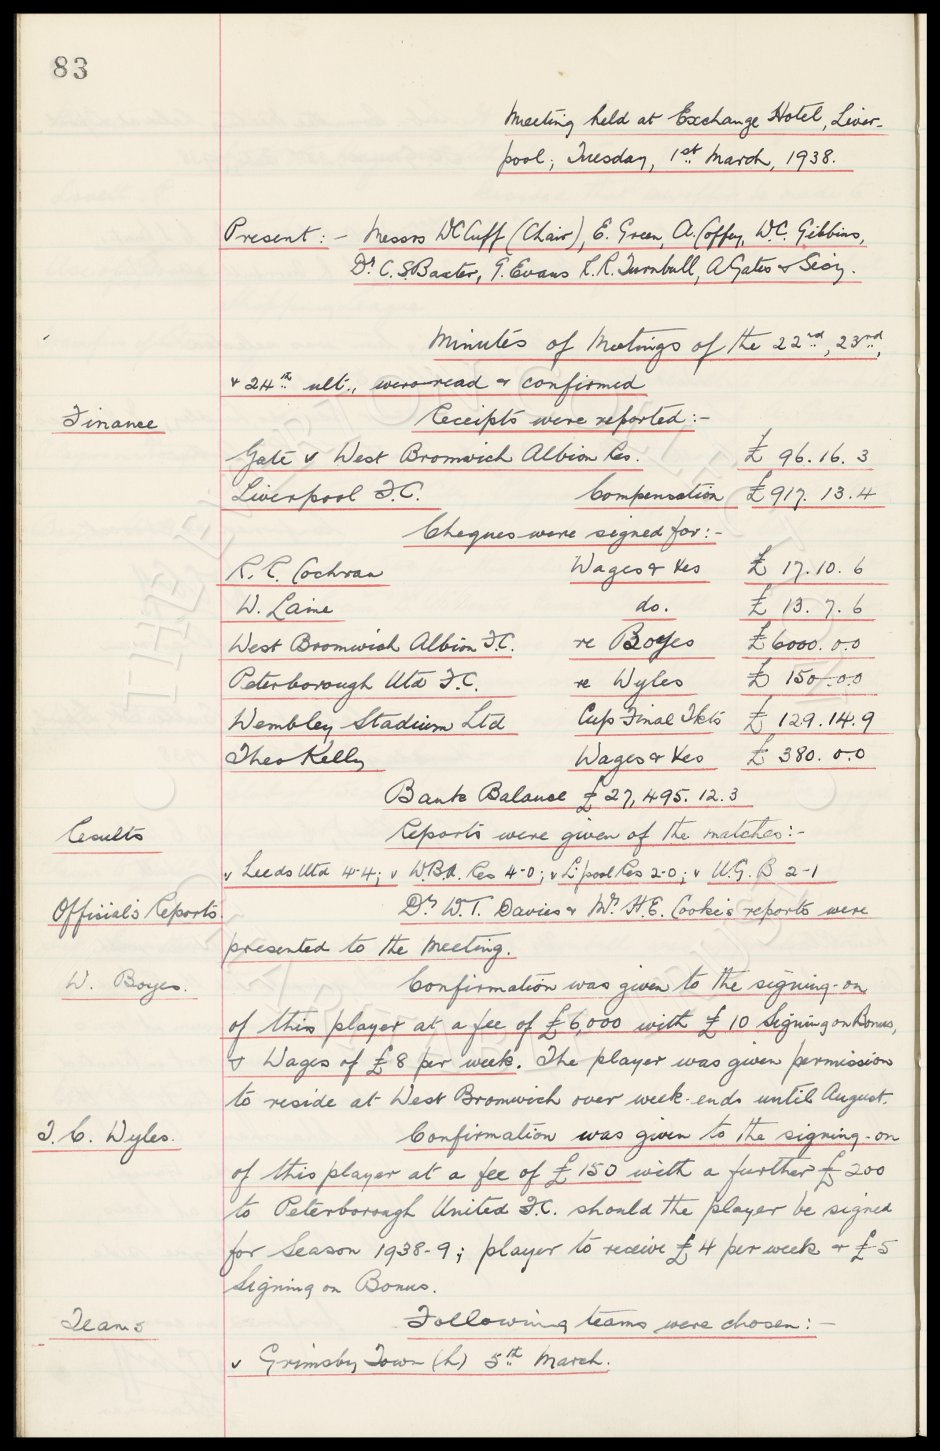 83
Meeting held at Exchange Hotel, Liver-
pool, Tuesday, 1st March, 1938.
Present: - Messrs WCCuff (Chair), E. Green, A. Coffey, W.C. Gibbins,
Dr C.S.Baxter, T. Evans R.R. Turnbull, A Gates & Secy.
Minutes of Meetings of the 22nd, 23rd,
& 24th ult., were read & confirmed
Finance Receipts were reported:-
Gate v West Bromwich Albion Res. £ 96. 16. 3
Liverpool F.C. Compensation £917. 13. 4
Cheques were signed for:-
R. R. Cochran Wages & Xes £ 17. 10. 6
W. Laine do. £ 13. 7. 6
West Bromwich Albion F.C. re Boyes £6000. 0.0
Peterborough Utd F.C. re Wyles £ 150. 0.0
Wembley Stadium Ltd Cup Final Tkts £ 129. 14. 9
Theo Kelly Wages & Xes £ 380. 0.0
Bank Balance £ 27,495. 12. 3
Results Reports were given of the matches:-
v Leeds Utd 4-4; v W.B.A. Res 4-0; v L'pool Res 2-0; v U.G.B 2-1
Official's Reports. Dr W.T. Davies & Mr H.E. Cooke's reports were
presented to the Meeting.
W. Boyes. Confirmation was given to the signing-on
of this player at a fee of £6,000 with £10 Signing on Bonus,
& Wages of £8 per week. The player was given permission
to reside at West Bromwich over week-ends until August.
T. C. Wyles. Confirmation was given to the signing-on
of this player at a fee of £150 with a further £200
to Peterborough United F.C. should the player be signed
for Season 1938-9; player to receive £4 per week & £5
Signing on Bonus.
Teams Following teams were chosen:-
v Grimsby Town (h) 5th March.
THE EVERTON COLLECTION
CHARITABLE TRUST